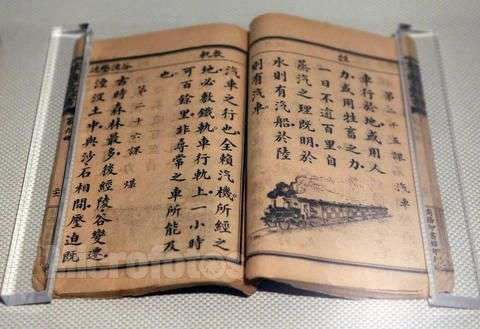 第二十五課 汽車
車行於地或用人
力或用牲畜之力
一日不過百里自
蒸汽之理既明於
水則有汽船於陸
則有汽車
敷軌
汽車之行也全賴汽機所經之
地必敷鐵軌車行軌上一小時
可百餘里非尋常之車所能及
也
第二十六課 煤
古時森林最多後經陵谷變遷
湮沒土中與沙石相間壓迫既
microfotos